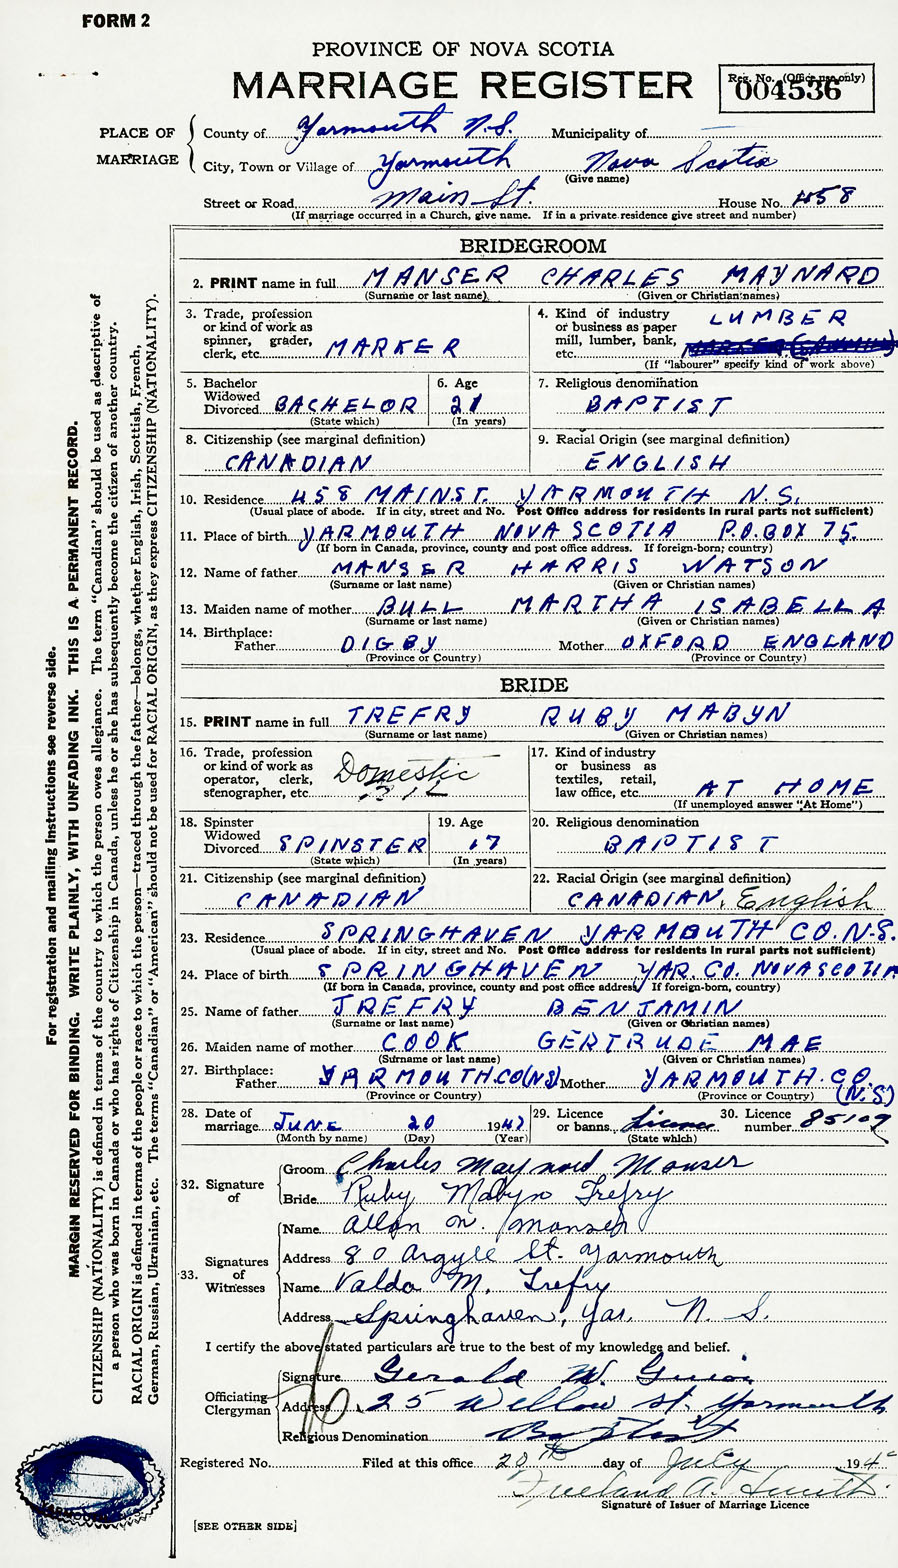 FORM 2
PROVINCE OF NOVA SCOTIA
MARRIAGE REGISTER
Reg. No. (Office use only)
004536
PLACE OF MARRIAGE
County of Yarmouth N.S. Municipality of —
City, Town or Village of Yarmouth Nova Scotia
(Give name)
Street or Road Main St. House No. 458
(If marriage occurred in a Church, give name. If in a private residence give street and number)
BRIDEGROOM
2. PRINT name in full MANSER CHARLES MAYNARD
(Surname or last name) (Given or Christian names)
3. Trade, profession or kind of work as spinner, grader, clerk, etc. MARKER
4. Kind of industry or business as paper mill, lumber, bank, etc. LUMBER
(If "labourer" specify kind of work above)
5. Bachelor Widowed Divorced BACHELOR
(State which)
6. Age 21
(In years)
7. Religious denomination
BAPTIST
8. Citizenship (see marginal definition)
CANADIAN
9. Racial Origin (see marginal definition)
ENGLISH
10. Residence 458 MAIN ST. YARMOUTH N.S.
(Usual place of abode. If in city, street and No. Post Office address for residents in rural parts not sufficient)
11. Place of birth YARMOUTH NOVA SCOTIA P.O. BOX 75.
(If born in Canada, province, county and post office address. If foreign-born; country)
12. Name of father MANSER HARRIS WATSON
(Surname or last name) (Given or Christian names)
13. Maiden name of mother BULL MARTHA ISABELLA
(Surname or last name) (Given or Christian names)
14. Birthplace:
Father DIGBY Mother OXFORD ENGLAND
(Province or Country) (Province or Country)
BRIDE
15. PRINT name in full TREFRY RUBY MABYN
(Surname or last name) (Given or Christian names)
16. Trade, profession or kind of work as operator, clerk, stenographer, etc. Domestic
17. Kind of industry or business as textiles, retail, law office, etc. AT HOME
(If unemployed answer "At Home")
18. Spinster Widowed Divorced SPINSTER
(State which)
19. Age 17
(In years)
20. Religious denomination
BAPTIST
21. Citizenship (see marginal definition)
CANADIAN
22. Racial Origin (see marginal definition)
CANADIAN. English
23. Residence SPRINGHAVEN YARMOUTH CO. N.S.
(Usual place of abode. If in city, street and No. Post Office address for residents in rural parts not sufficient)
24. Place of birth SPRINGHAVEN YAR. CO. NOVA SCOTIA
(If born in Canada, province, county and post office address. If foreign-born, country)
25. Name of father TREFRY BENJAMIN
(Surname or last name) (Given or Christian names)
26. Maiden name of mother COOK GERTRUDE MAE
(Surname or last name) (Given or Christian names)
27. Birthplace:
Father YARMOUTH.CO(NS) Mother YARMOUTH.CO. (N.S.)
(Province or Country) (Province or Country)
28. Date of marriage JUNE 20 1942
(Month by name) (Day) (Year)
29. Licence or banns Licence
(State which)
30. Licence number 85109
32. Signature of
Groom Charles Maynard Manser
Bride Ruby Mabyn Trefry
33. Signatures of Witnesses
Name Allan W. Manser
Address 80 Argyle St. Yarmouth
Name Valda M. Trefry
Address Springhaven, Yar. N. S.
I certify the above stated particulars are true to the best of my knowledge and belief.
Officiating Clergyman
Signature Gerald W. Guiou
Address 25 Willow St. Yarmouth
Religious Denomination Baptist
Registered No. Filed at this office 20th day of July 194
Signature of Issuer of Marriage Licence
[SEE OTHER SIDE]
For registration and mailing instructions see reverse side.
MARGIN RESERVED FOR BINDING. WRITE PLAINLY, WITH UNFADING INK. THIS IS A PERMANENT RECORD.
CITIZENSHIP (NATIONALITY) is defined in terms of the country to which the person owes allegiance. The term "Canadian" should be used as descriptive of
a person who was born in Canada or who has rights of Citizenship in Canada, unless he or she has subsequently become the citizen of another country.
RACIAL ORIGIN is defined in terms of the people or race to which the person—traced through the father—belongs, whether English, Irish, Scottish, French,
German, Russian, Ukrainian, etc. The terms "Canadian" or "American" should not be used for RACIAL ORIGIN, as they express CITIZENSHIP (NATIONALITY).